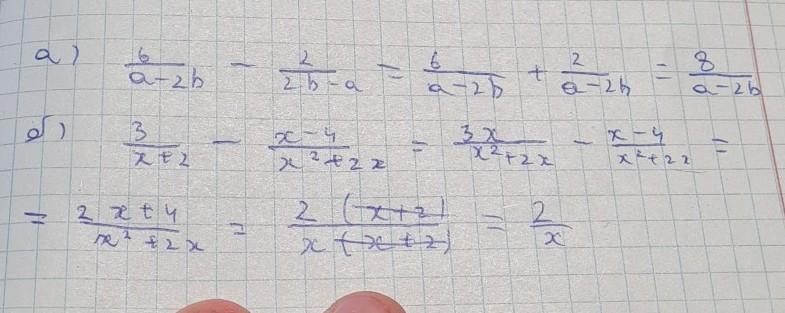 а) 6/(a-2b) - 2/(2b-a) = 6/(a-2b) + 2/(a-2b) = 8/(a-2b)
б) 3/(x+2) - (x-4)/(x²+2x) = 3x/(x²+2x) - (x-4)/(x²+2x) =
= (2x+4)/(x²+2x) = 2(x+2)/(x(x+2)) = 2/x